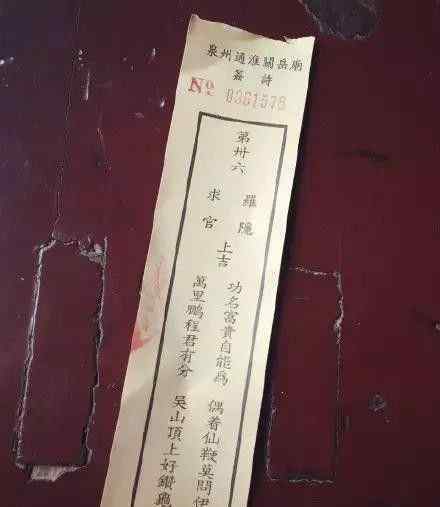 泉州通淮關岳廟
簽詩
№ 0361578
第卅六
羅隱
求官
上吉
功名富貴自能爲 偶着仙鞭莫問伊
萬里鵬程君有分 吳山頂上好鑽龜